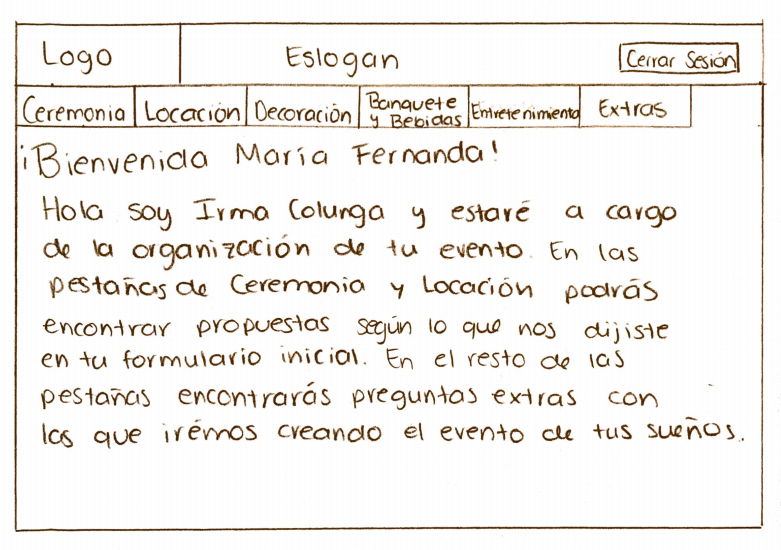 Logo
Eslogan
Cerrar Sesión
Ceremonia
Locación
Decoración
Banquete
y Bebidas
Entretenimiento
Extras
¡Bienvenida María Fernanda!
Hola soy Irma Colunga y estaré a cargo
de la organización de tu evento. En las
pestañas de Ceremonia y Locación podrás
encontrar propuestas según lo que nos dijiste
en tu formulario inicial. En el resto de las
pestañas encontrarás preguntas extras con
las que irémos creando el evento de tus sueños.